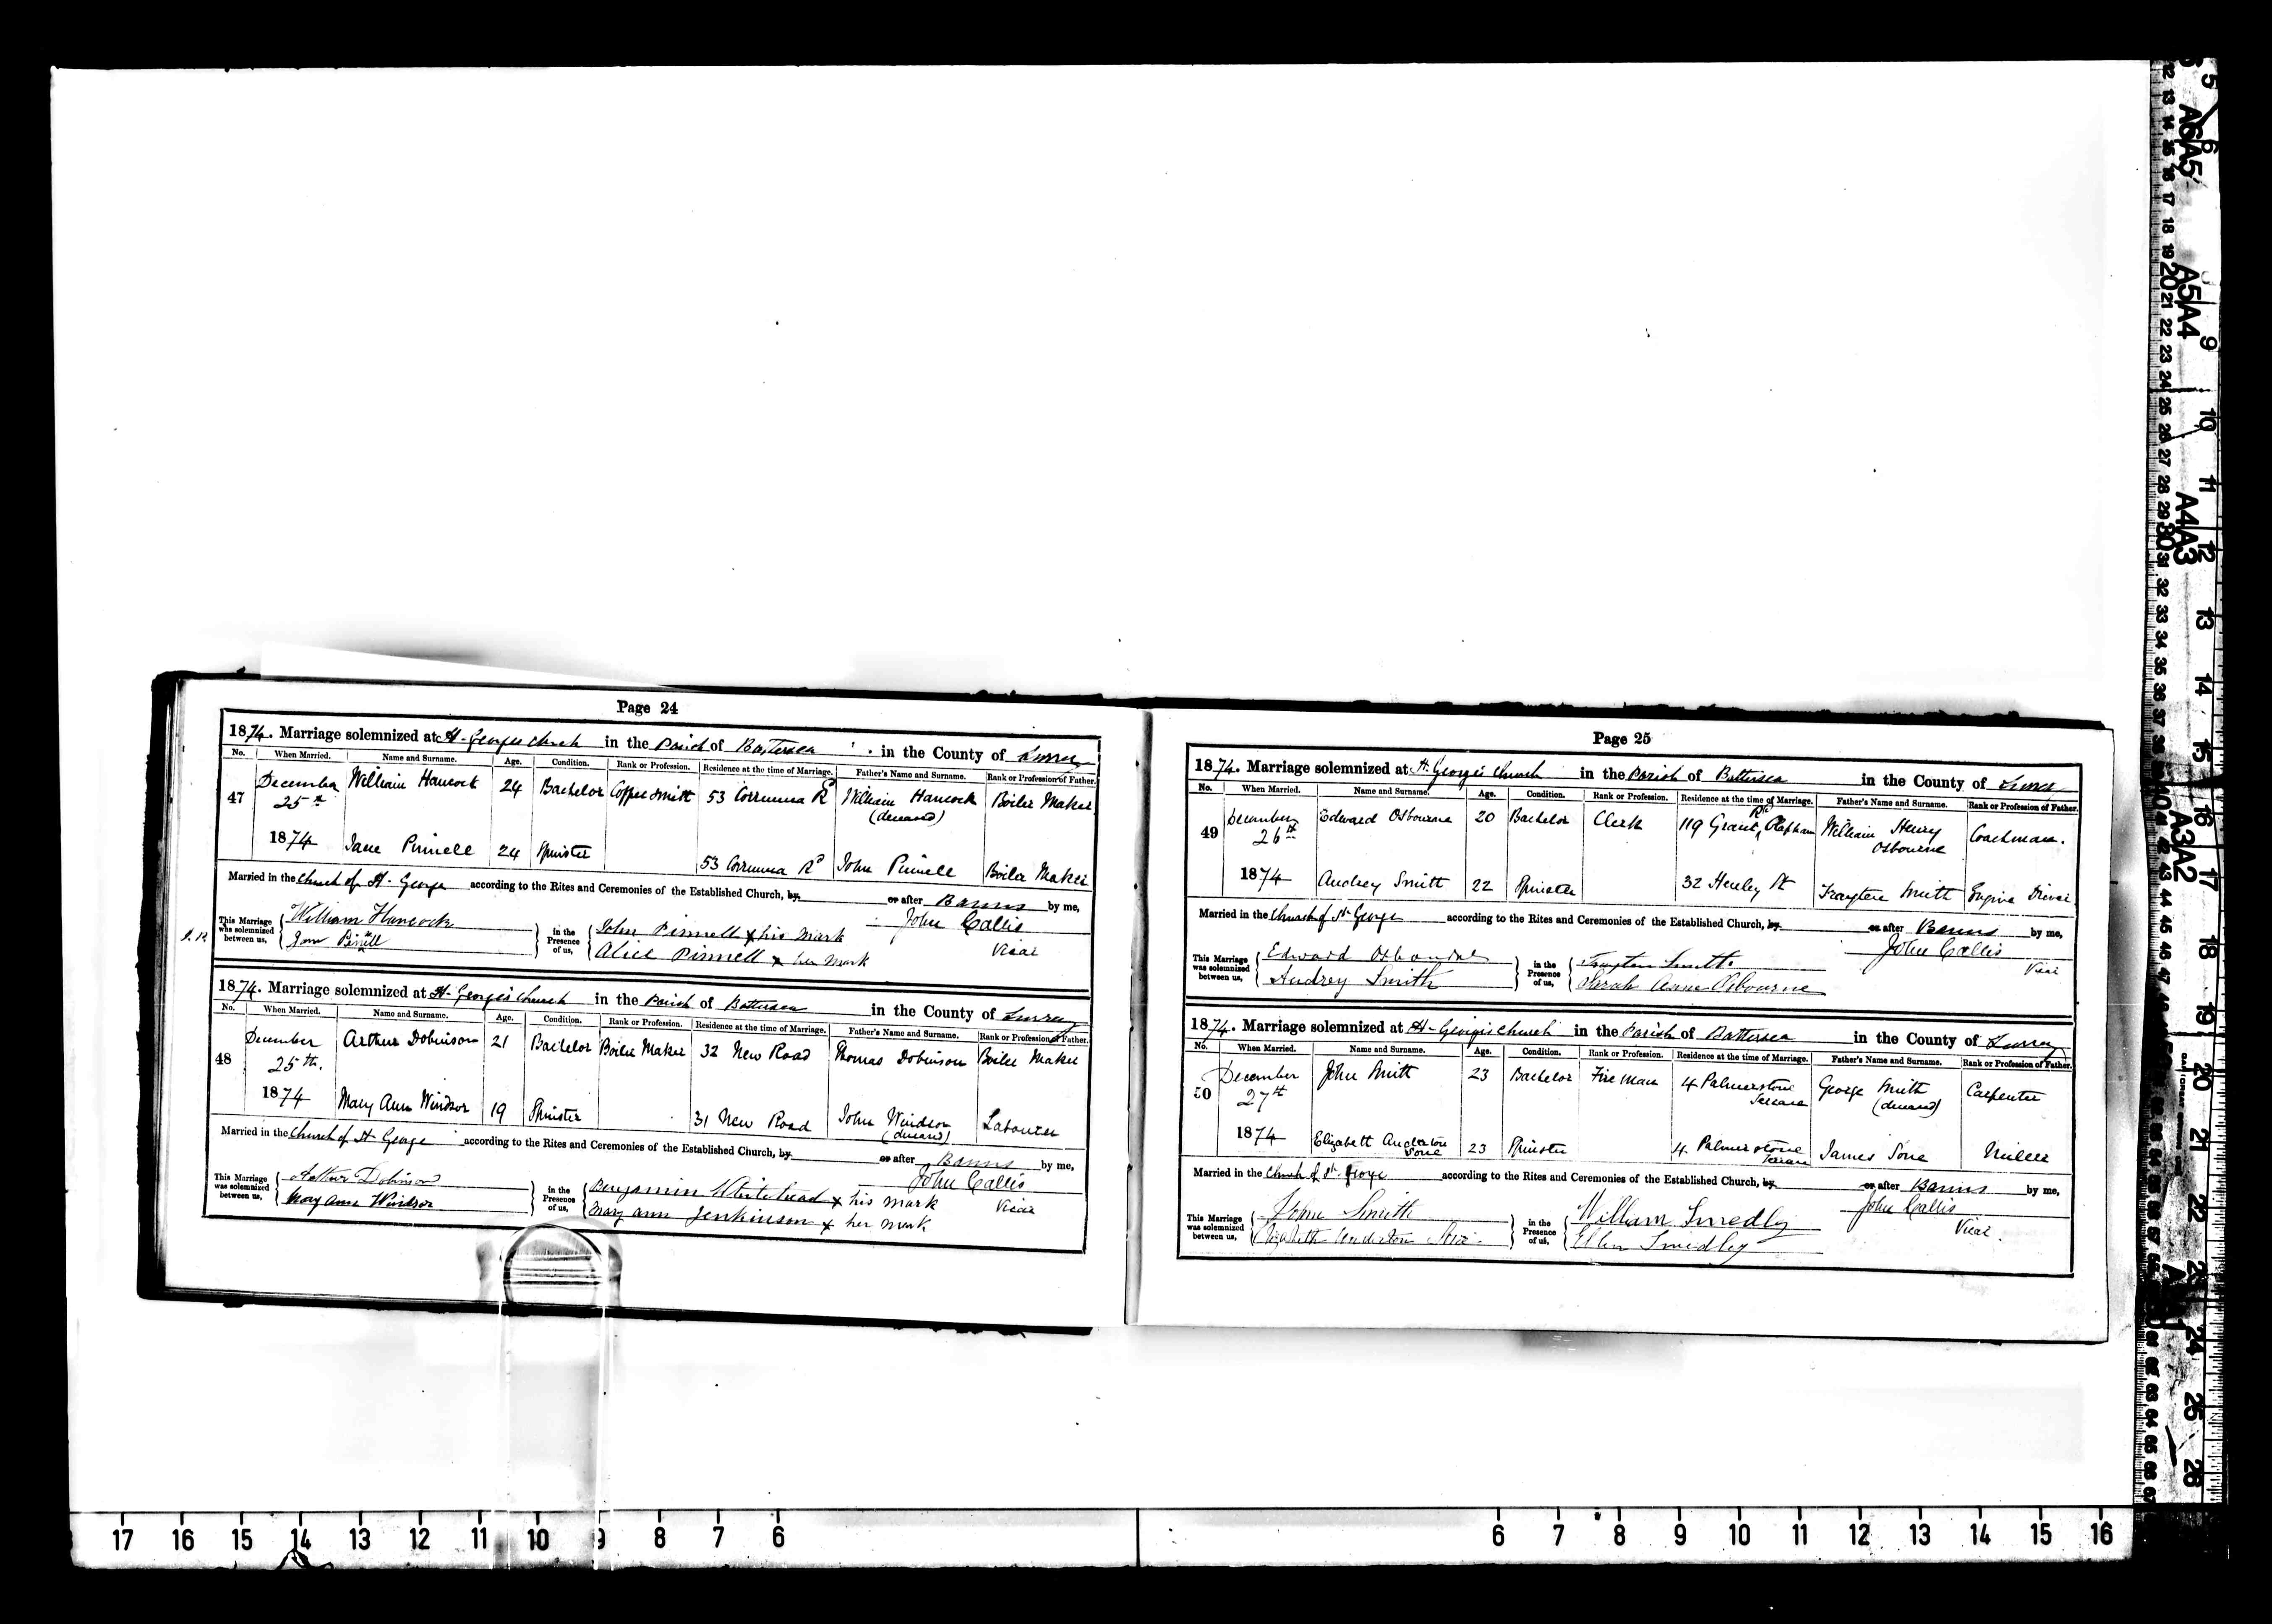 Page 24
1874. Marriage solemnized at St. George's Church in the Parish of Battersea in the County of Surrey
No. When Married. Name and Surname. Age. Condition. Rank or Profession. Residence at the time of Marriage. Father's Name and Surname. Rank or Profession of Father.
47 December 25th William Hancock 24 Bachelor Coppersmith 53 Corrunna Rd William Hancock (deceased) Boiler Maker
1874 Jane Pinnell 24 Spinster 53 Corrunna Rd John Pinnell Boiler Maker
Married in the Church of St. George according to the Rites and Ceremonies of the Established Church, by or after Banns by me,
This Marriage was solemnized between us, William Hancock in the Presence of us, John Pinnell x his mark John Callis
Pinnell Alice Pinnell x her mark Vicar
1874. Marriage solemnized at St. George's Church in the Parish of Battersea in the County of Surrey
No. When Married. Name and Surname. Age. Condition. Rank or Profession. Residence at the time of Marriage. Father's Name and Surname. Rank or Profession of Father.
48 December 25th. Arthur Dobinson 21 Bachelor Boiler Maker 32 New Road Thomas Dobinson Boiler Maker
1874 Mary Ann Windsor 19 Spinster 31 New Road John Windsor (deceased) Labourer
Married in the Church of St. George according to the Rites and Ceremonies of the Established Church, by or after Banns by me,
This Marriage was solemnized between us, Arthur Dobinson in the Presence of us, Benjamin Whitehead x his mark John Callis
Mary Ann Windsor Mary Ann Jenkinson x her mark Vicar
Page 25
1874. Marriage solemnized at St. George's Church in the Parish of Battersea in the County of Surrey
No. When Married. Name and Surname. Age. Condition. Rank or Profession. Residence at the time of Marriage. Father's Name and Surname. Rank or Profession of Father.
49 December 26th Edward Osbourne 20 Bachelor Clerk 119 Grant Rd Clapham William Henry Osbourne Coachman.
1874 Audrey Smith 22 Spinster 32 Henley St Smith Engine Driver
Married in the Church of St. George according to the Rites and Ceremonies of the Established Church, by or after Banns by me,
This Marriage was solemnized between us, Edward Osbourne in the Presence of us, Smith John Callis
Audrey Smith Sarah Anne Osbourne Vicar
1874. Marriage solemnized at St. George's Church in the Parish of Battersea in the County of Surrey
No. When Married. Name and Surname. Age. Condition. Rank or Profession. Residence at the time of Marriage. Father's Name and Surname. Rank or Profession of Father.
50 December 27th John Smith 23 Bachelor Fireman 4 Palmerstone Terrace George Smith (deceased) Carpenter
1874 Elizabeth Anderton Sone 23 Spinster 4 Palmerstone Terrace James Sone Miller
Married in the Church of St. George according to the Rites and Ceremonies of the Established Church, by or after Banns by me,
This Marriage was solemnized between us, John Smith in the Presence of us, William Smedly John Callis
Elizabeth Anderton Sone Ellen Smedly Vicar.
17 16 15 14 13 12 11 10 9 8 7 6 6 7 8 9 10 11 12 13 14 15 16